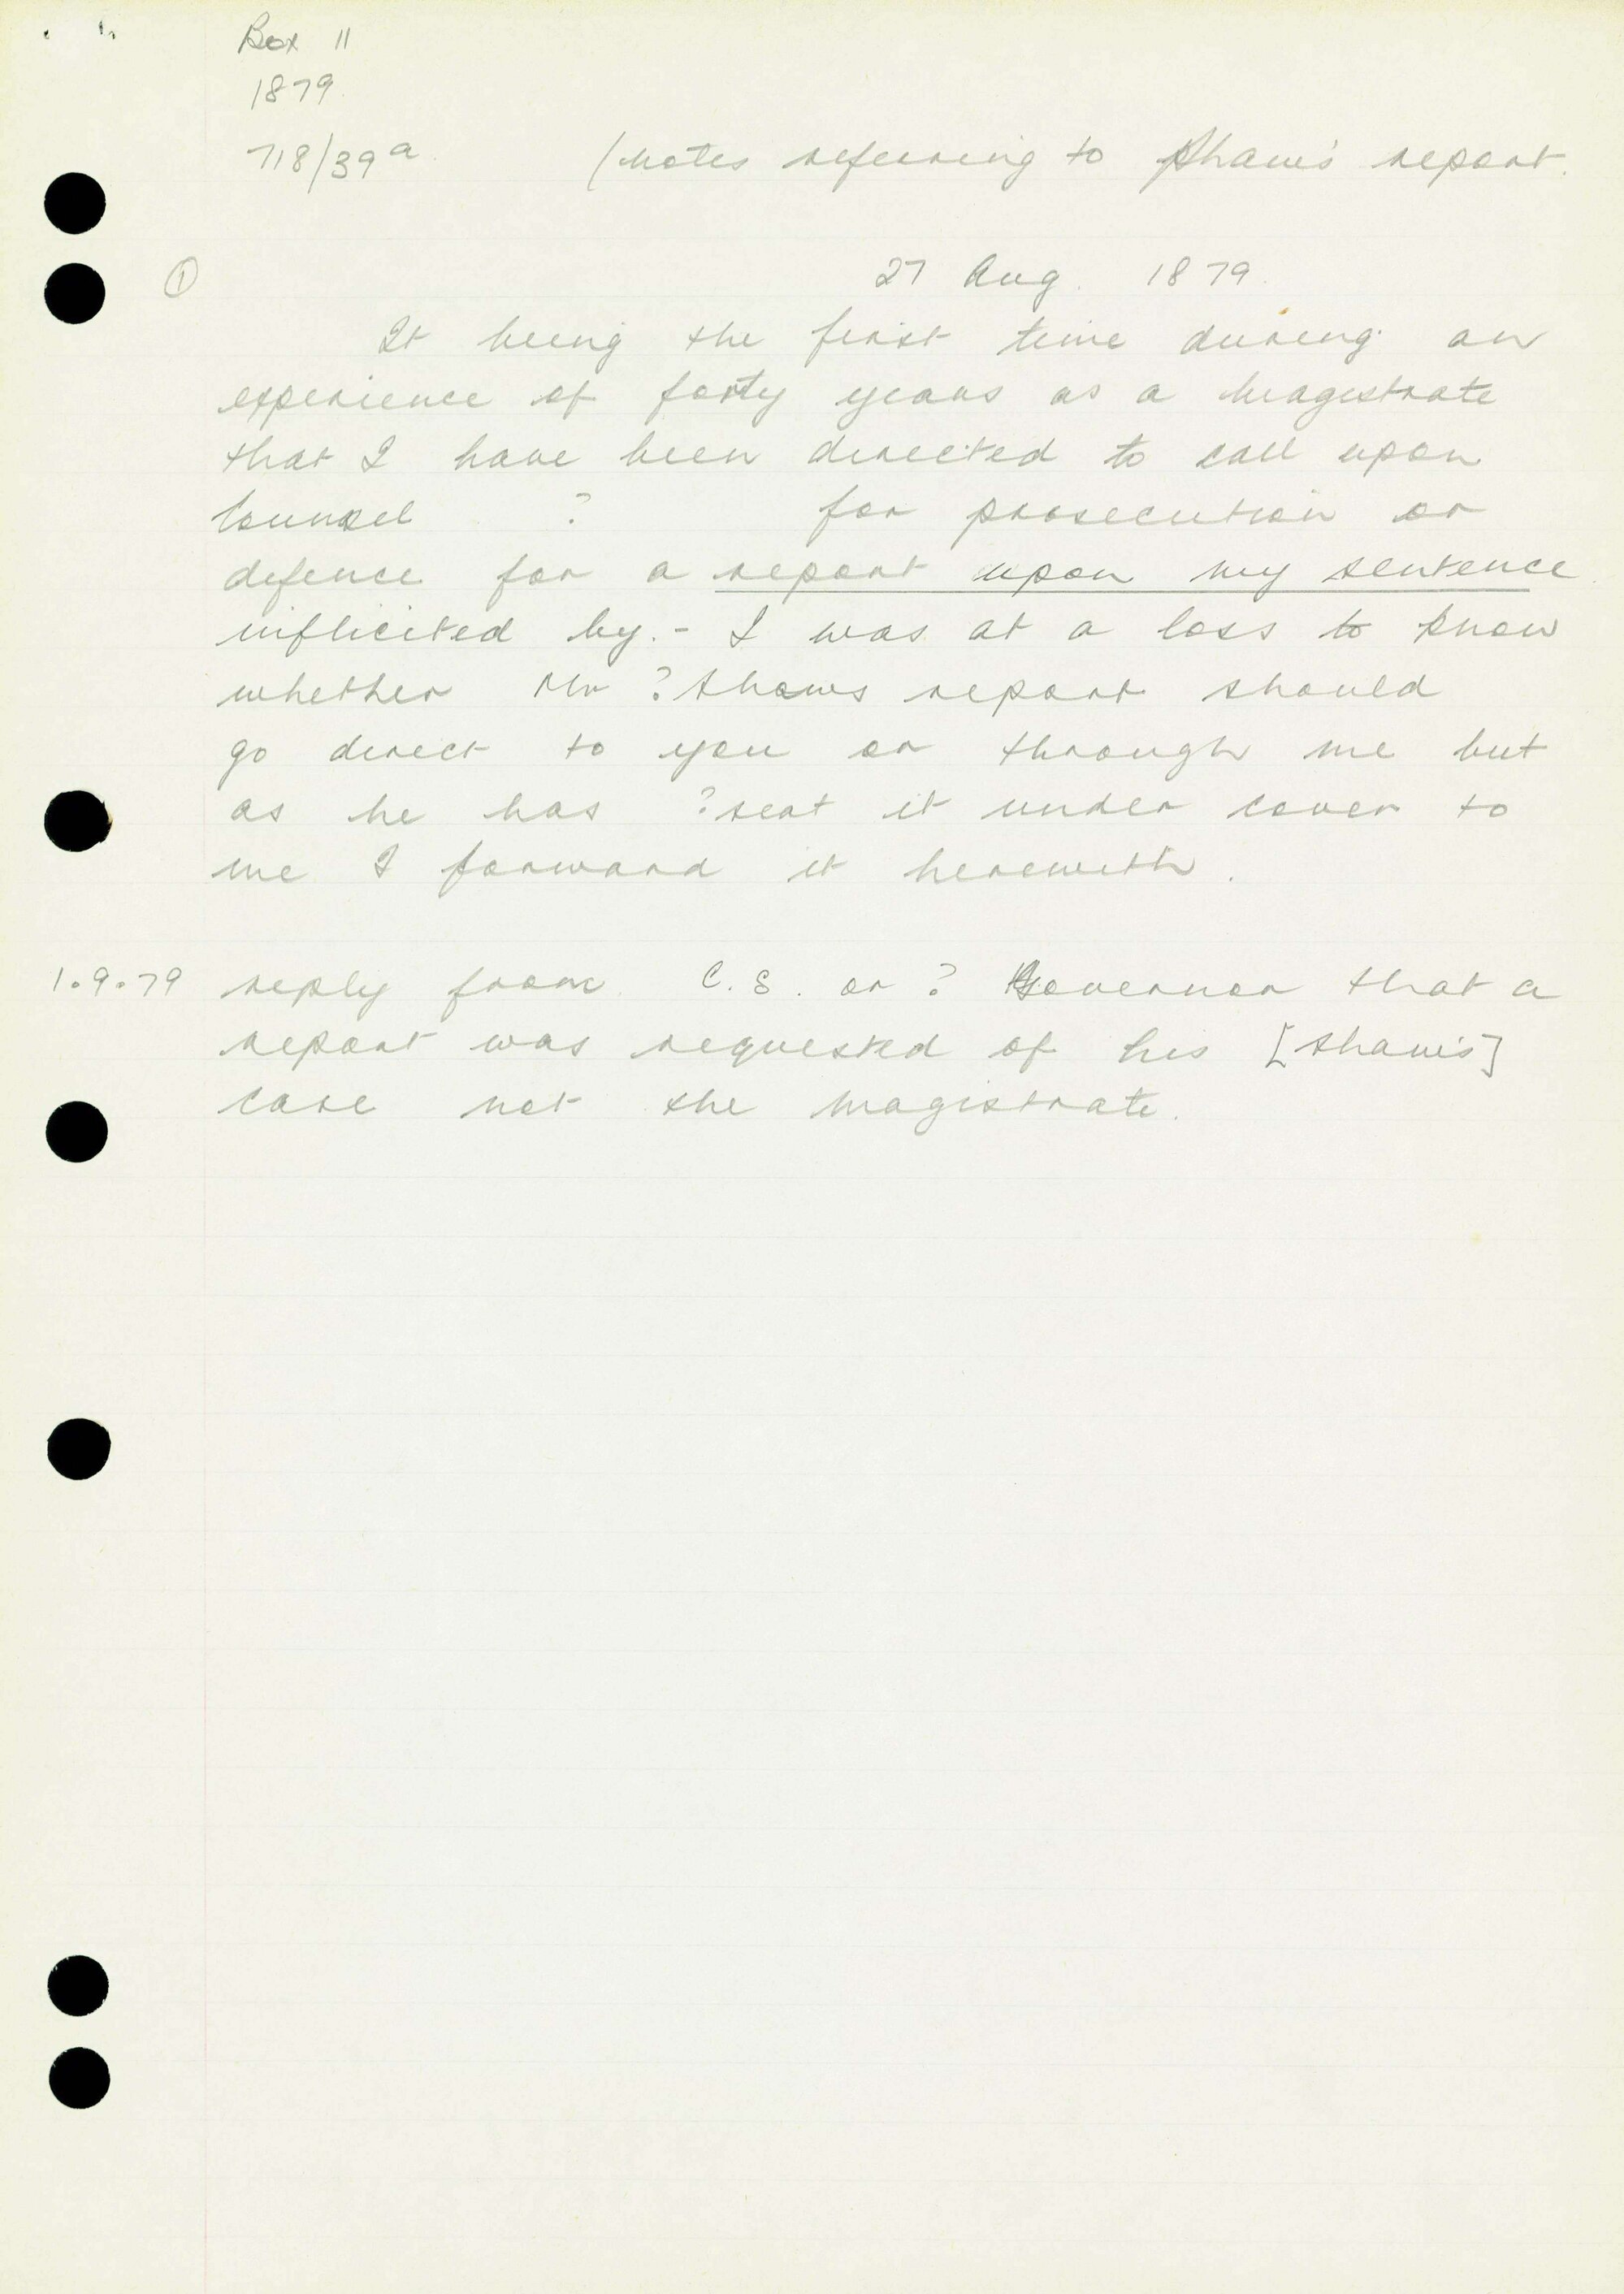 Box 11
1879
718/39a (notes referring to Shaw's report.
① 27 Aug. 1879.
It being the first time during an
experience of forty years as a magistrate
that I have been directed to call upon
Counsel ? for prosecution or
defence for a report upon my sentence
inflicited by.- I was at a loss to know
whether Mr ? Shaws report should
go direct to you or through me but
as he has ? sent it under cover to
me I forward it herewith.
1.9.79 reply from C.S. or ? Governor that a
report was requested of his [Shaw's]
case not the magistrate.